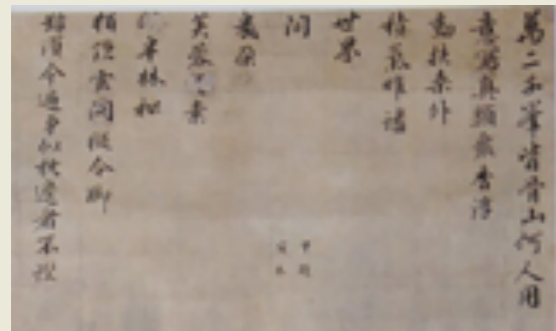 萬二千峯皆骨山何人用
意寫眞顔衆香浮
動扶桑外
積氣雄蟠
世界
間
幾朶
芙蓉 素
林松
栢隱玄關從今脚
須今遍爭似枕邊看不慳